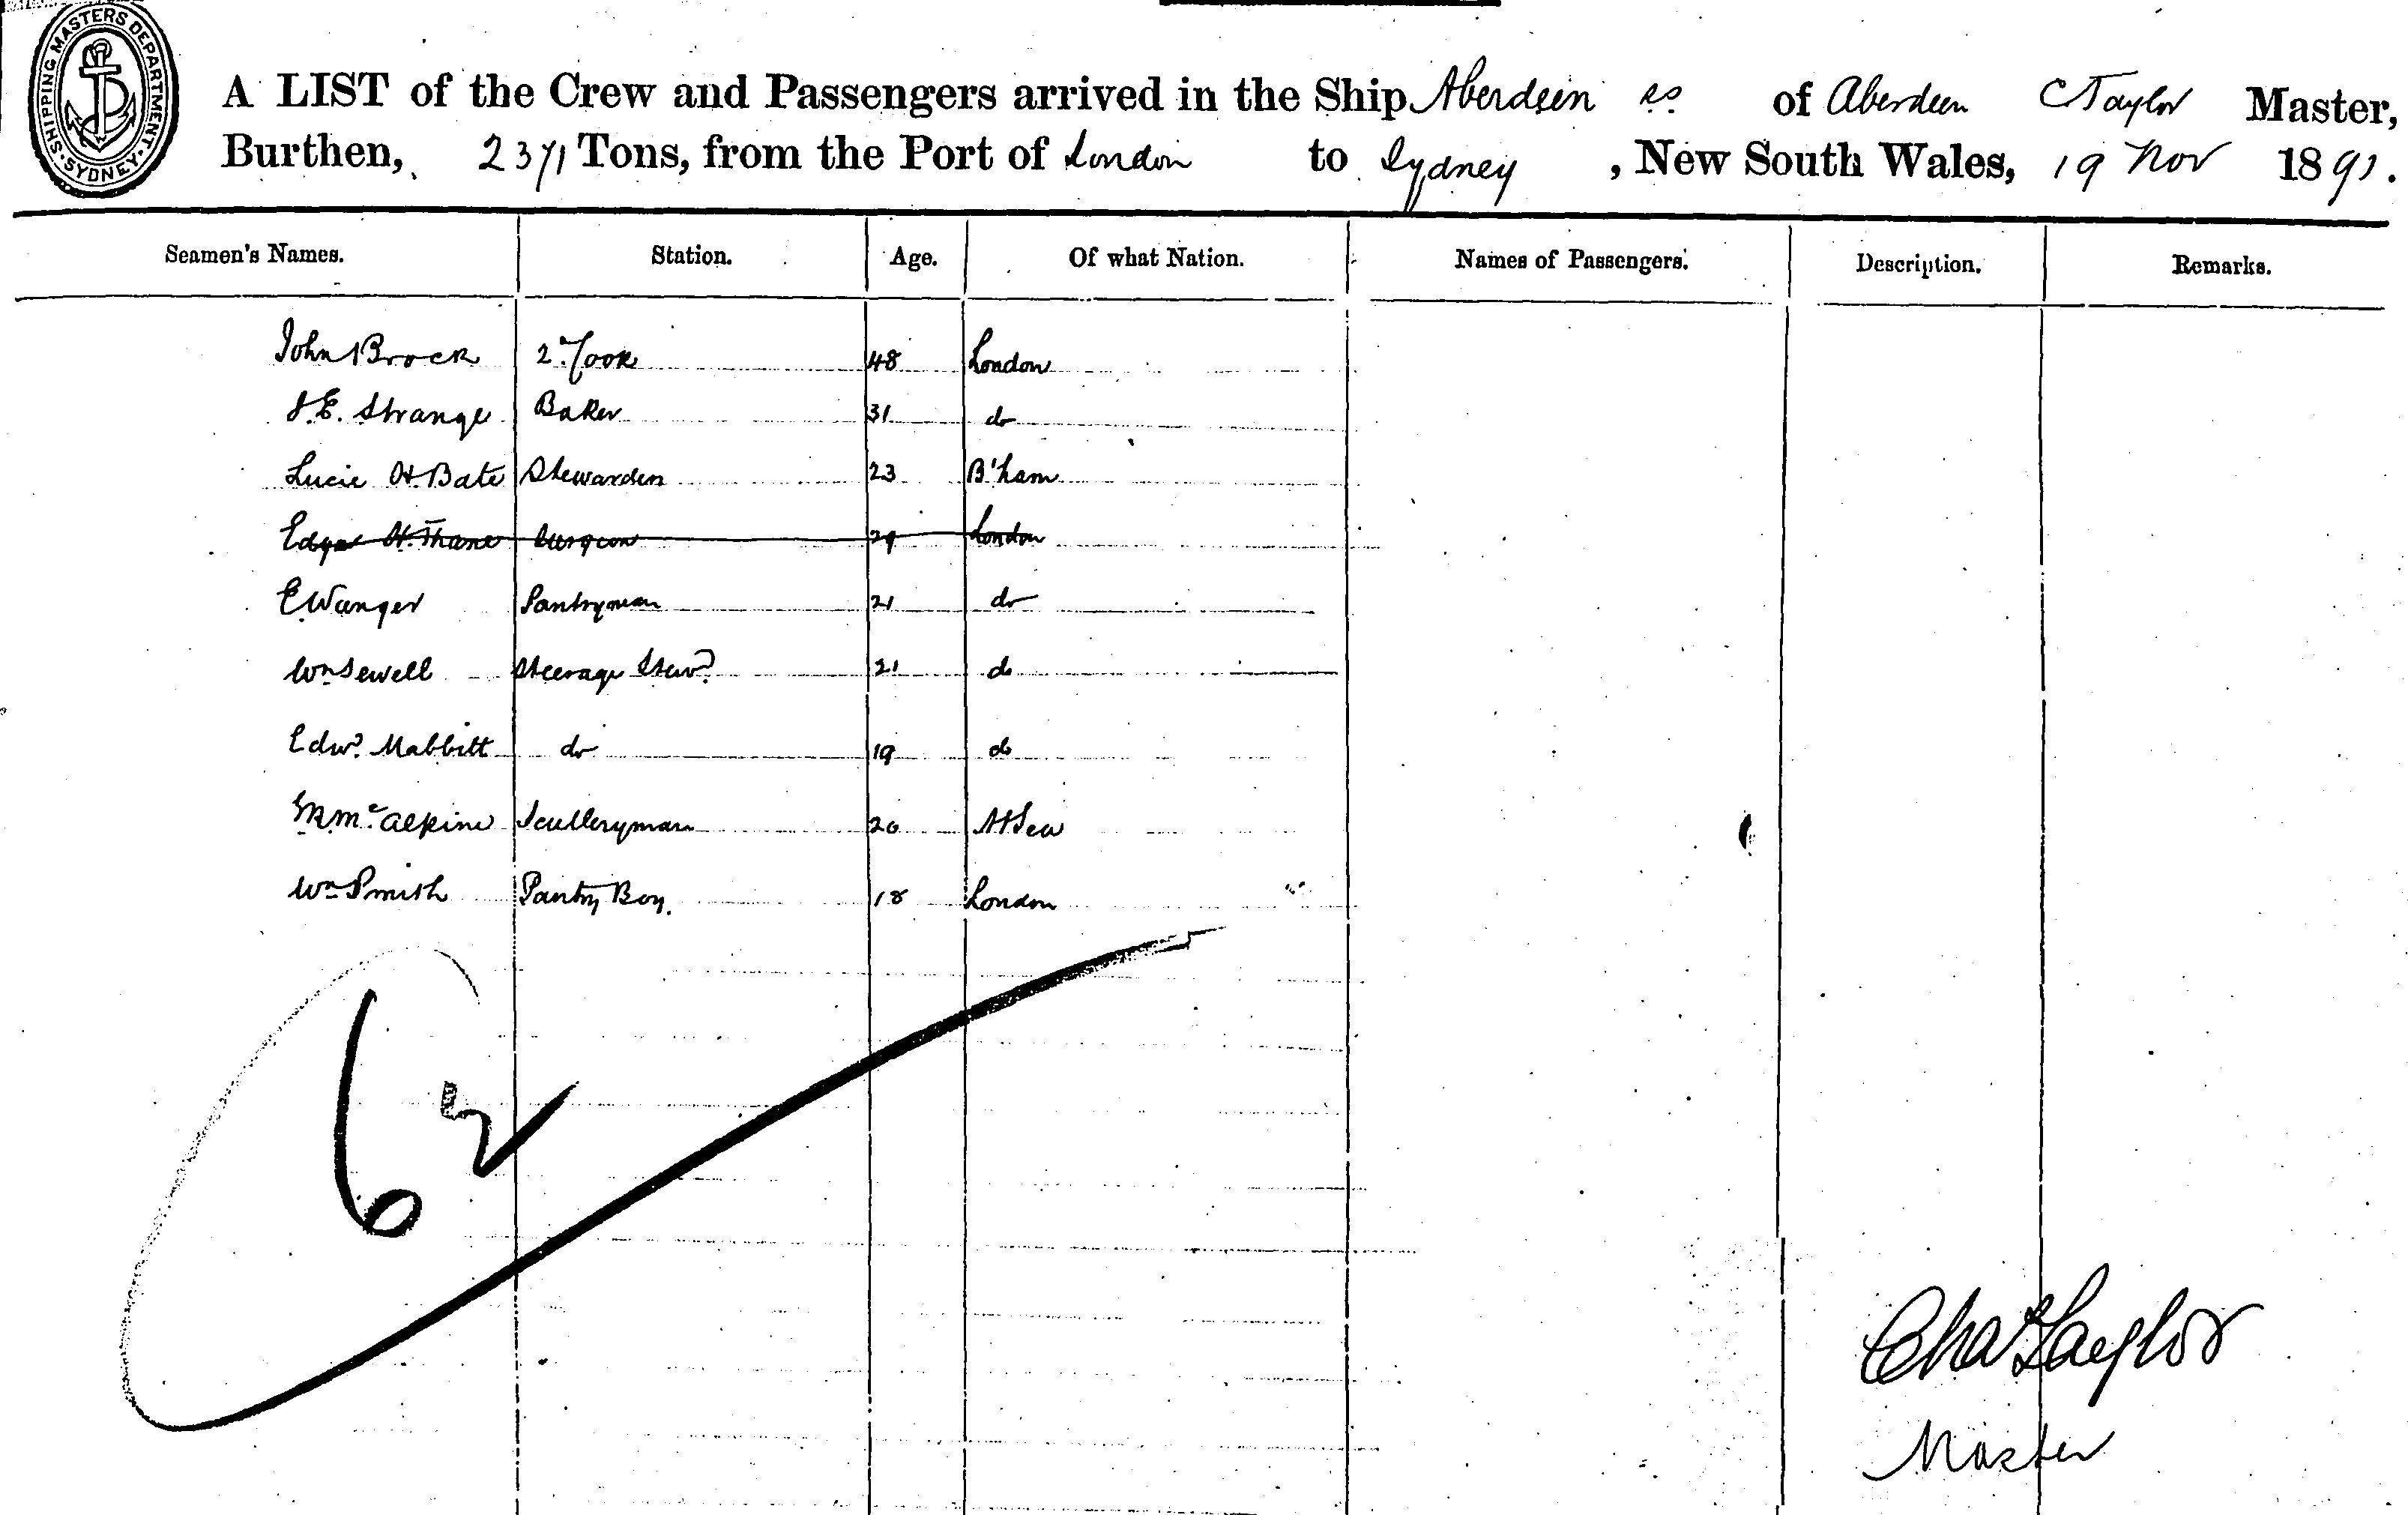 SHIPPING MASTERS DEPARTMENT · SYDNEY ·
A LIST of the Crew and Passengers arrived in the Ship Aberdeen ss of Aberdeen C Taylor Master,
Burthen, 2371 Tons, from the Port of London to Sydney, New South Wales, 19 Nov 1891.
Seamen's Names. Station. Age. Of what Nation. Names of Passengers. Description. Remarks.
John Brock 2d Cook 48 London
J.E. Strange Baker 31 do
Lucie H. Bate Stewardess 23 B'ham
Edgar H. Thane Surgeon 29 London
E Wanger Pantryman 21 do
Wm Sewell Steerage Stewd 21 do
Edwd. Mabbitt do 19 do
McAlpine Sculleryman 20 At Sea
Wm Smith Pantry Boy. 18 London
62
Chas Taylor
Master